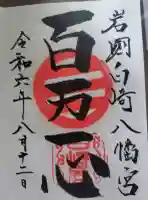 岩國白崎八幡宮
百万一心
令和六年八月十二日